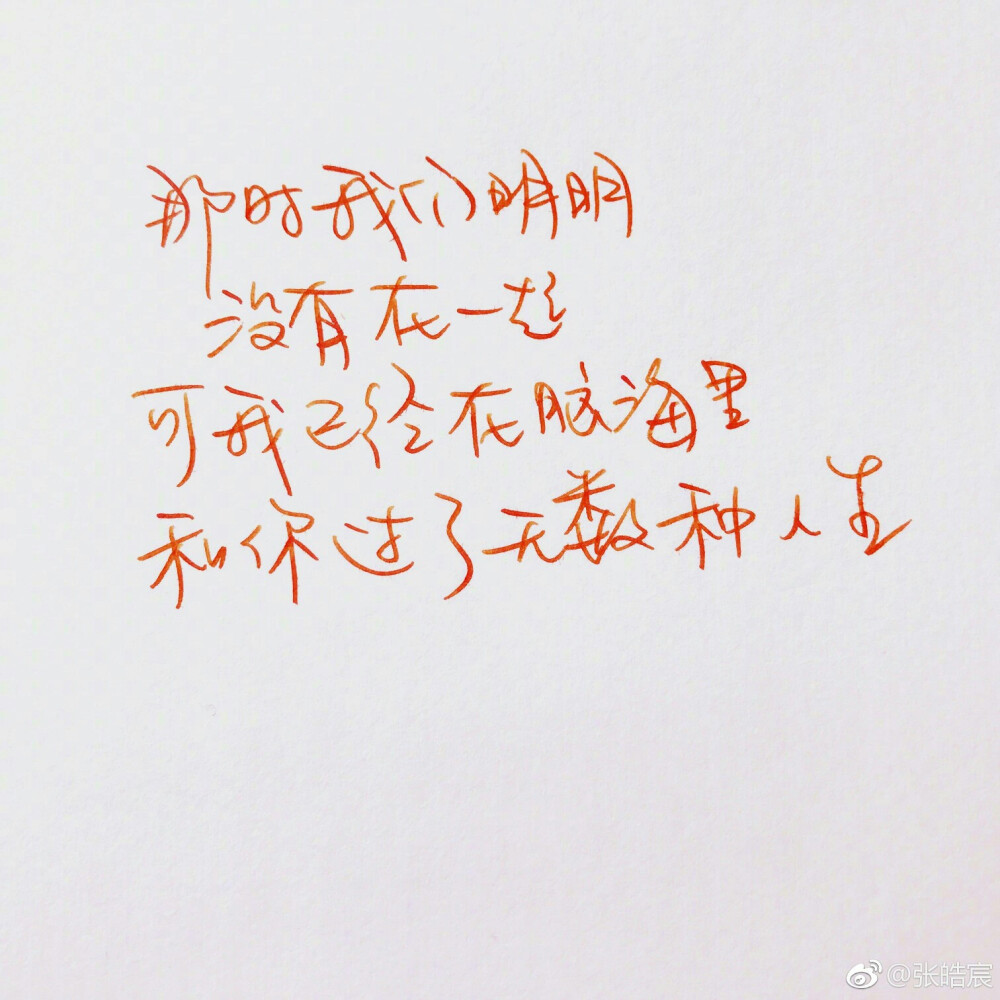 那时我们明明
没有在一起
可我已经在脑海里
和你过了无数种人生
@张皓宸